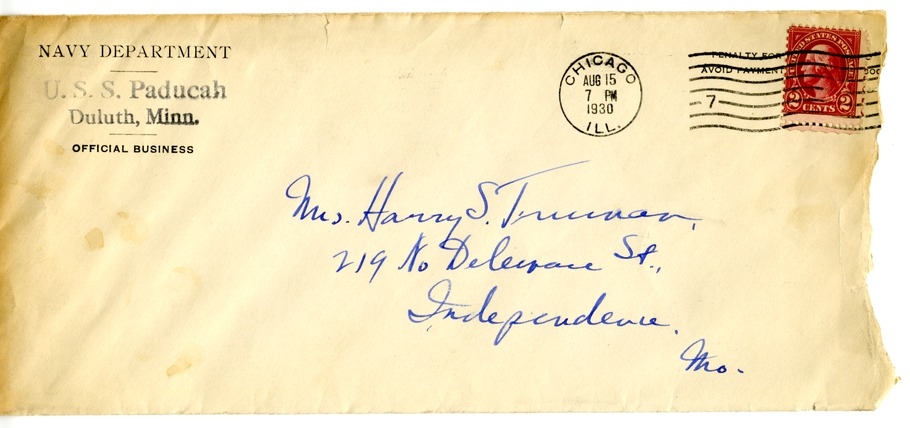 NAVY DEPARTMENT
U. S. S. Paducah
Duluth, Minn.
OFFICIAL BUSINESS
CHICAGO
AUG 15
7 PM
1930
ILL.
PENALTY FOR
AVOID PAYMENT
7
UNITED STATES POSTAGE
2 CENTS 2
Mrs. Harry S. Truman,
219 No Deleware St.,
Independence,
Mo.